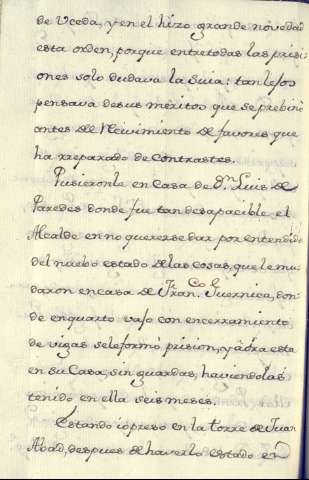 de Vceda, y en el hizo grande novedad
esta orden, porque entre todas las prisi
ones solo dudava la suia: tan lejos
pensava de sus meritos que se prebini
antes del recivimiento de favores que
ha rreparado de contrastes.
Pusieronle en Casa de Dn. Luis de
Paredes donde fue tan desapacible el
Alcalde en no quererse dar por entendido
del nuebo estado de las cosas, que le mu
daron en casa de Fran.co Guernica, don
de en quarto vajo con encerramiento
de vigas se le formó prision, y aora esta
en su Casa, sin guardas, haviendolas
tenido en ella seis meses.
Estando io preso en la torre de Juan
Abad, despues de haverlo estado en